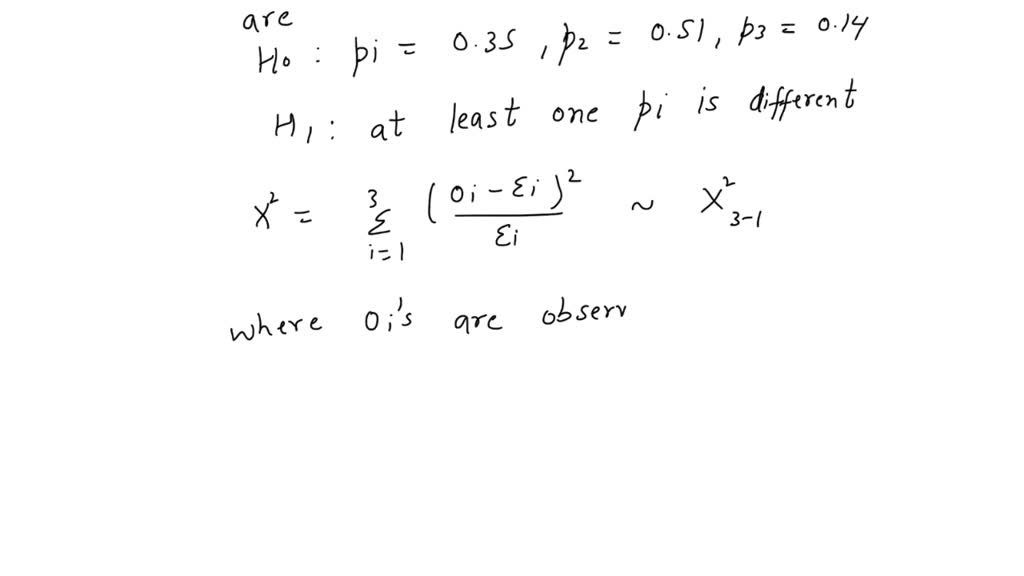 are
H0 : pi = 0.35 , p2 = 0.51, p3 = 0.14
H1 : at least one pi is different
X² = 3Σi=1 (0i - Ei)²/Ei ~ X²3-1
where 0i's are observ